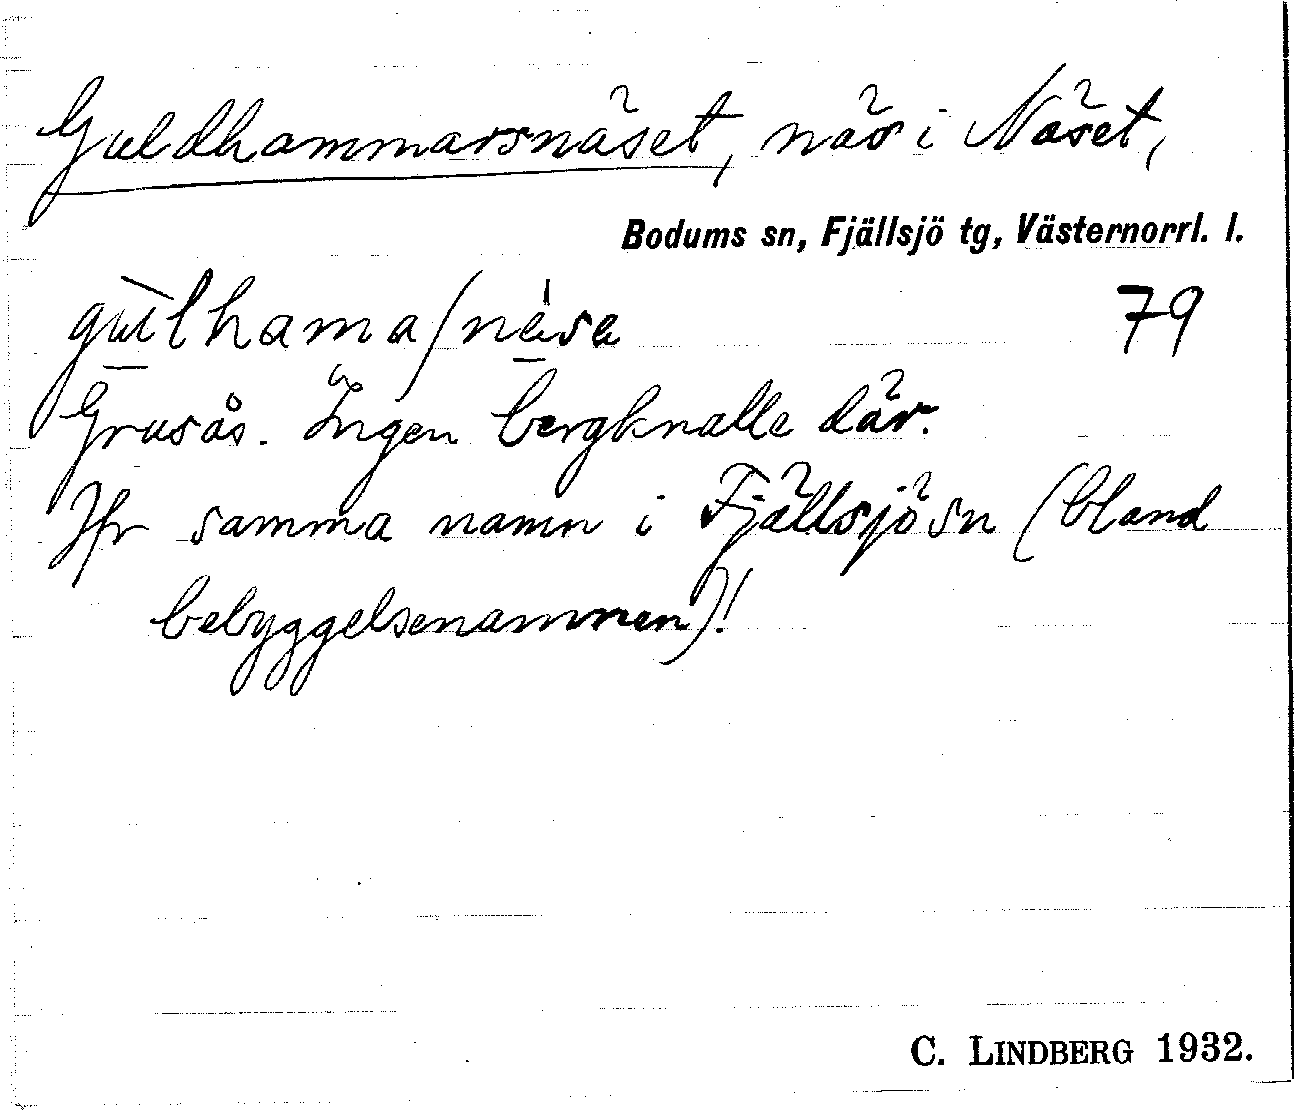 Guldhammarsnäset, näs i Näset,
Bodums sn, Fjällsjö tg, Västernorrl. l.
79
Grusås. Ingen bergknalle där.
Jfr samma namn i Fjällsjö sn (bland
bebyggelsenamnen)!
C. LINDBERG 1932.